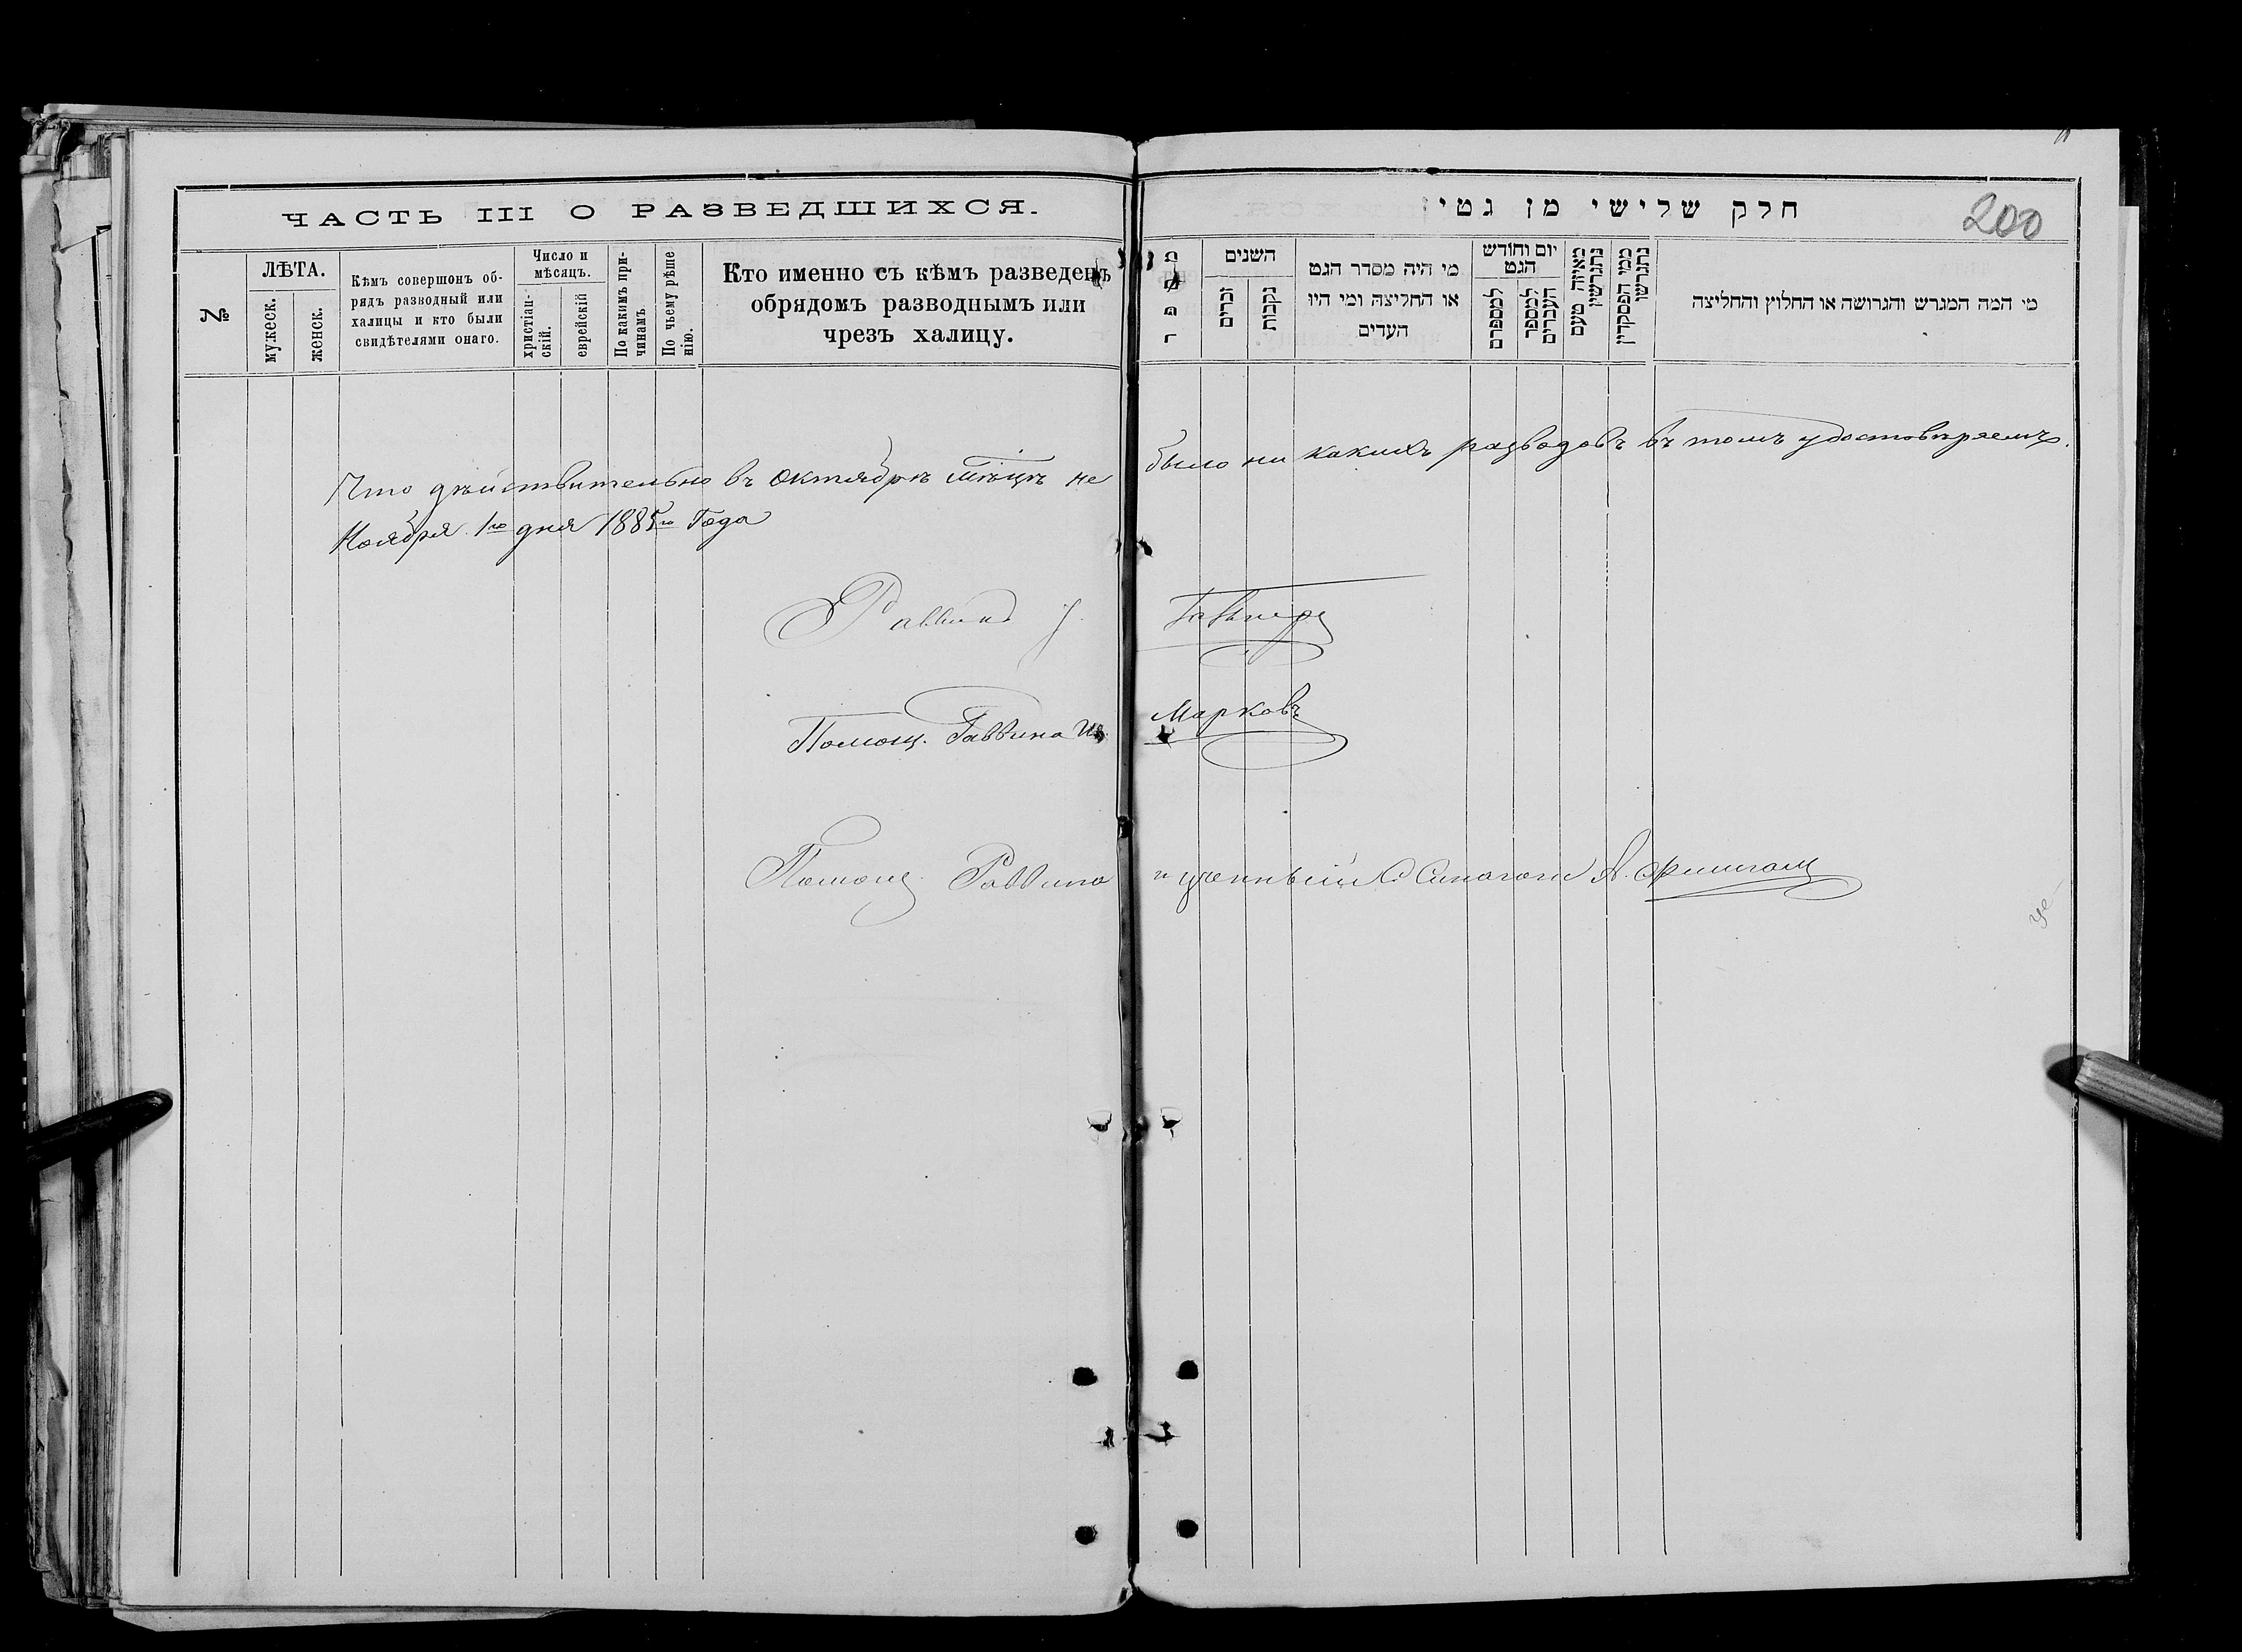 ЧАСТЬ III О РАЗВЕДШИХСЯ.
№
ЛѢТА.
мужеск.
женск.
Кѣмъ совершонъ об-
рядъ разводный или
халицы и кто были
свидѣтелями онаго.
Число и
мѣсяцъ.
христіан-
скій.
еврейскій
По какимъ при-
чинамъ
По чьему рѣше
нію.
Кто именно съ кѣмъ разведенъ
обрядомъ разводнымъ или
чрезъ халицу.
חלק שלישי מן גטין
200
מספר
השנים
זכרים
נקבות
מי היה מסדר הגט
או החליצה ומי היו
העדים
יום וחודש
הגט
למספרם
למספר
העברים
מאיזה טעם
נתגרשין
ממי הפסקדין
נתגרשו
מי המה המגרש והגרושה או החלוץ והחליצה
Что дѣйствительно въ Октябрѣ мѣцѣ не было ни какихъ разводовъ въ томъ удостовѣряемъ.
Ноября 1го дня 1885го Года
Раввинъ
Помощ. Раввина Марковъ
Помощ. Раввина и ученный Синагоги А.